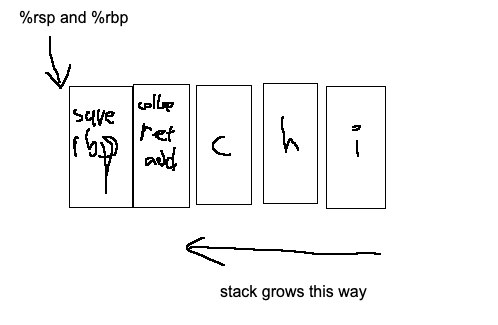 %rsp and %rbp
save
rbp
ret
add
c
h
i
stack grows this way